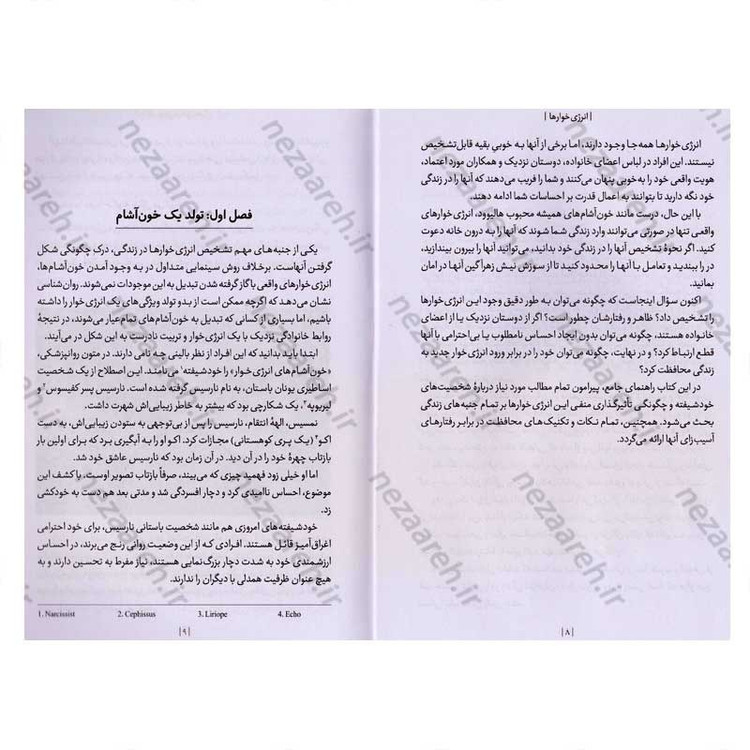 | انرژی‌خوارها |
انرژی‌خوارها همه‌جا وجود دارند، اما برخی از آنها به خوبیِ بقیه قابل‌تشخیص
نیستند. این افراد در لباس اعضای خانواده، دوستان نزدیک و همکاران مورد اعتماد،
هویت واقعی خود را به‌خوبی پنهان می‌کنند و شما را فریب می‌دهند که آنها را در زندگی
خود نگه دارید تا بتوانند به اعمال قدرت بر احساسات شما ادامه دهند.
با این حال، درست مانند خون‌آشام‌های همیشه محبوب هالیوود، انرژی‌خوارهای
واقعی تنها در صورتی می‌توانند وارد زندگی شما شوند که آنها را به درون خانه دعوت
کنید. اگر نحوهٔ تشخیص آنها را در زندگی خود بدانید، می‌توانید آنها را بیرون بیندازید،
در را ببندید و تعامل با آنها را محدود کنید تا از سوزش نیش زهرآگین آنها در امان
بمانید.
اکنون سؤال اینجاست که چگونه می‌توان به طور دقیق وجود این انرژی‌خوارها
را تشخیص داد؟ ظاهر و رفتارشان چطور است؟ اگر از دوستان نزدیک یا از اعضای
خانواده هستند، چگونه می‌توان بدون ایجاد احساس نامطلوب یا بی‌احترامی با آنها
قطع ارتباط کرد؟ و در نهایت، چگونه می‌توان خود را در برابر ورود انرژی‌خوار جدید به
زندگی محافظت کرد؟
در این کتاب راهنمای جامع، پیرامون تمام مطالب مورد نیاز دربارهٔ شخصیت‌های
خودشیفته و چگونگی تأثیرگذاری منفی این انرژی‌خوارها بر تمام جنبه‌های زندگی
بحث می‌شود. همچنین، تمام نکات و تکنیک‌های محافظت در برابر رفتارهای
آسیب‌زای آنها ارائه می‌گردد.
| ۸ |
فصل اول: تولد یک خون‌آشام
یکی از جنبه‌های مهم تشخیص انرژی‌خوارها در زندگی، درک چگونگی شکل
گرفتن آنهاست. برخلاف روش سینمایی متداول در به وجود آمدن خون‌آشام‌ها،
انرژی‌خوارهای واقعی با گاز گرفته شدن تبدیل به این موجودات نمی‌شوند. روان‌شناسی
نشان می‌دهد که اگرچه ممکن است از بدو تولد ویژگی‌های یک انرژی‌خوار را داشته
باشیم، اما بسیاری از کسانی که تبدیل به خون‌آشام‌های تمام‌عیار می‌شوند، در نتیجهٔ
روابط خانوادگی نزدیک با یک انرژی‌خوار و تربیت نادرست به این شکل در می‌آیند.
ابتدا باید بدانید که این افراد از نظر بالینی چه نامی دارند. در متون روانپزشکی،
«خون‌آشام‌های انرژی‌خوار» را خودشیفته¹ می‌نامند. این اصطلاح از یک شخصیت
اساطیری یونان باستان، به نام نارسیس گرفته شده است. نارسیس پسر کفیسوس² و
لیریوپه³، یک شکارچی بود که بیشتر به خاطر زیبایی‌اش شهرت داشت.
نمسیس، الههٔ انتقام، نارسیس را پس از بی‌توجهی به ستودن زیبایی‌اش، به دست
اکو⁴ (یک پری کوهستانی) مجازات کرد. اکو او را به آبگیری برد که برای اولین بار
بازتاب چهرهٔ خود را در آن دید. در آن زمان بود که نارسیس عاشق خود شد.
اما او خیلی زود فهمید چیزی که می‌بیند، صرفاً بازتاب تصویر اوست. با کشف این
موضوع، احساس ناامیدی کرد و دچار افسردگی شد و مدتی بعد هم دست به خودکشی
زد.
خودشیفته‌های امروزی هم مانند شخصیت باستانی نارسیس، برای خود احترامی
اغراق‌آمیز قائل هستند. افرادی که از این وضعیت روانی رنج می‌برند، در احساس
ارزشمندی خود به شدت دچار بزرگ‌نمایی هستند، نیاز مفرط به تحسین دارند و به
هیچ عنوان ظرفیت همدلی با دیگران را ندارند.
1. Narcissist 2. Cephissus 3. Liriope 4. Echo
| ۹ |
nezaareh.ir
nezaareh.ir
nezaareh.ir
nezaareh.ir
nezaareh.ir
nezaareh.ir
nezaareh.ir
nezaareh.ir
nezaareh.ir